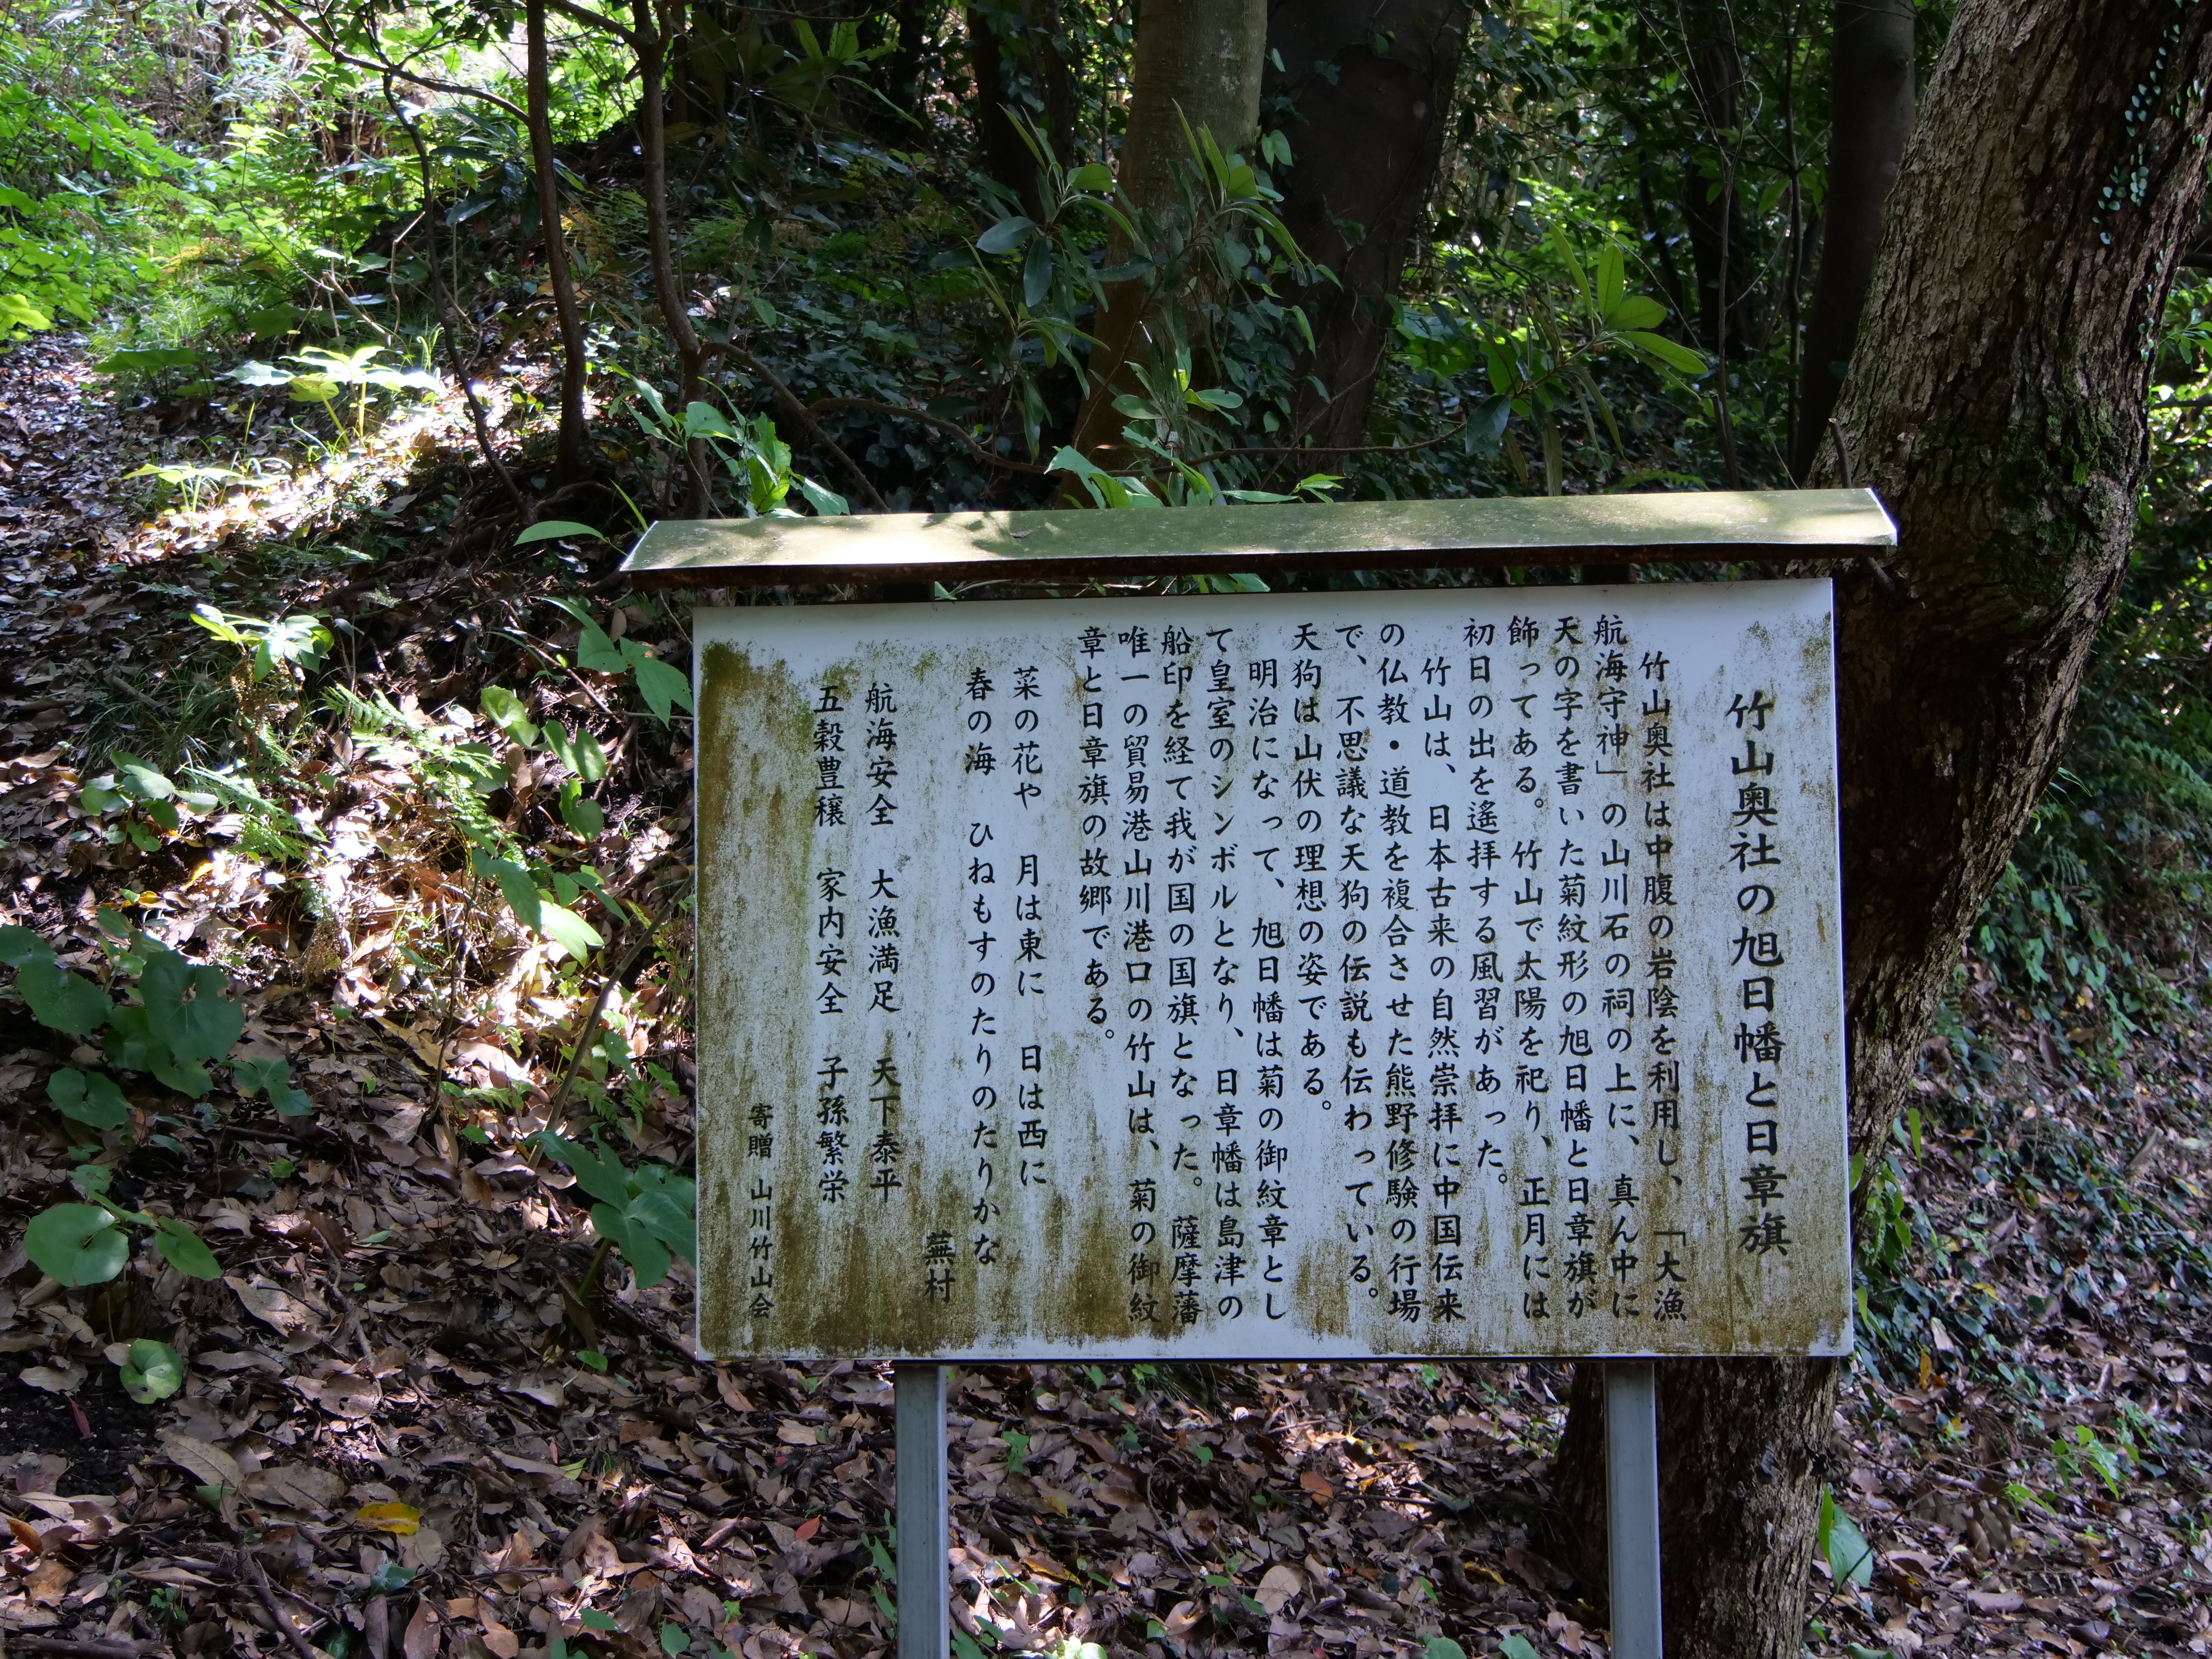 竹山奥社の旭日幡と日章旗
竹山奥社は中腹の岩陰を利用し、「大漁
航海守神」の山川石の祠の上に、真ん中に
天の字を書いた菊紋形の旭日幡と日章旗が
飾ってある。竹山で太陽を祀り、正月には
初日の出を遙拝する風習があった。
竹山は、日本古来の自然崇拝に中国伝来
の仏教・道教を複合させた熊野修験の行場
で、不思議な天狗の伝説も伝わっている。
天狗は山伏の理想の姿である。
明治になって、旭日幡は菊の御紋章とし
て皇室のシンボルとなり、日章幡は島津の
船印を経て我が国の国旗となった。薩摩藩
唯一の貿易港山川港口の竹山は、菊の御紋
章と日章旗の故郷である。
菜の花や 月は東に 日は西に
春の海 ひねもすのたりのたりかな
蕪村
航海安全 大漁満足 天下泰平
五穀豊穣 家内安全 子孫繁栄
寄贈 山川竹山会